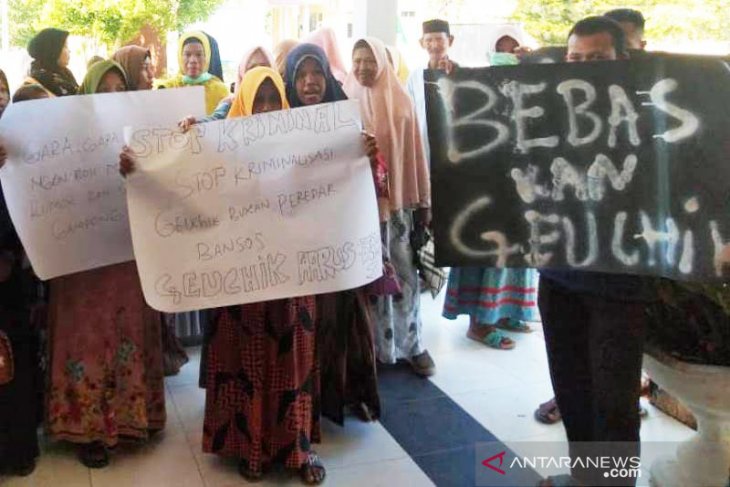 GARA-GARA
STOP KRIMINAL
STOP KRIMINALISASI
GEUCHIK BUKAN PEREDAR
BANSOS
GEUCHIK HARUS
BEBAS
KAN
GEUCHIK
ANTARANEWS
.com